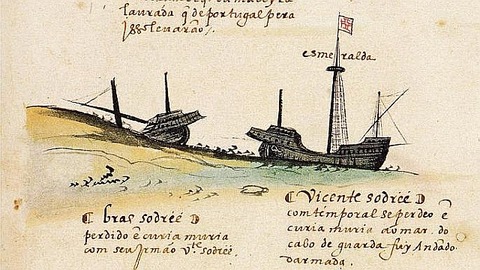 laurada q̃ de portugal pera
leuarão
esmeralda
bras sodréé
perdido ẽ curia muria
com seu irmão vte sodréé.
Vicente sodréé
com temporal se perdeo ẽ
curia muria ao mar. do
cabo de guardafuy Andãdo
darmada.